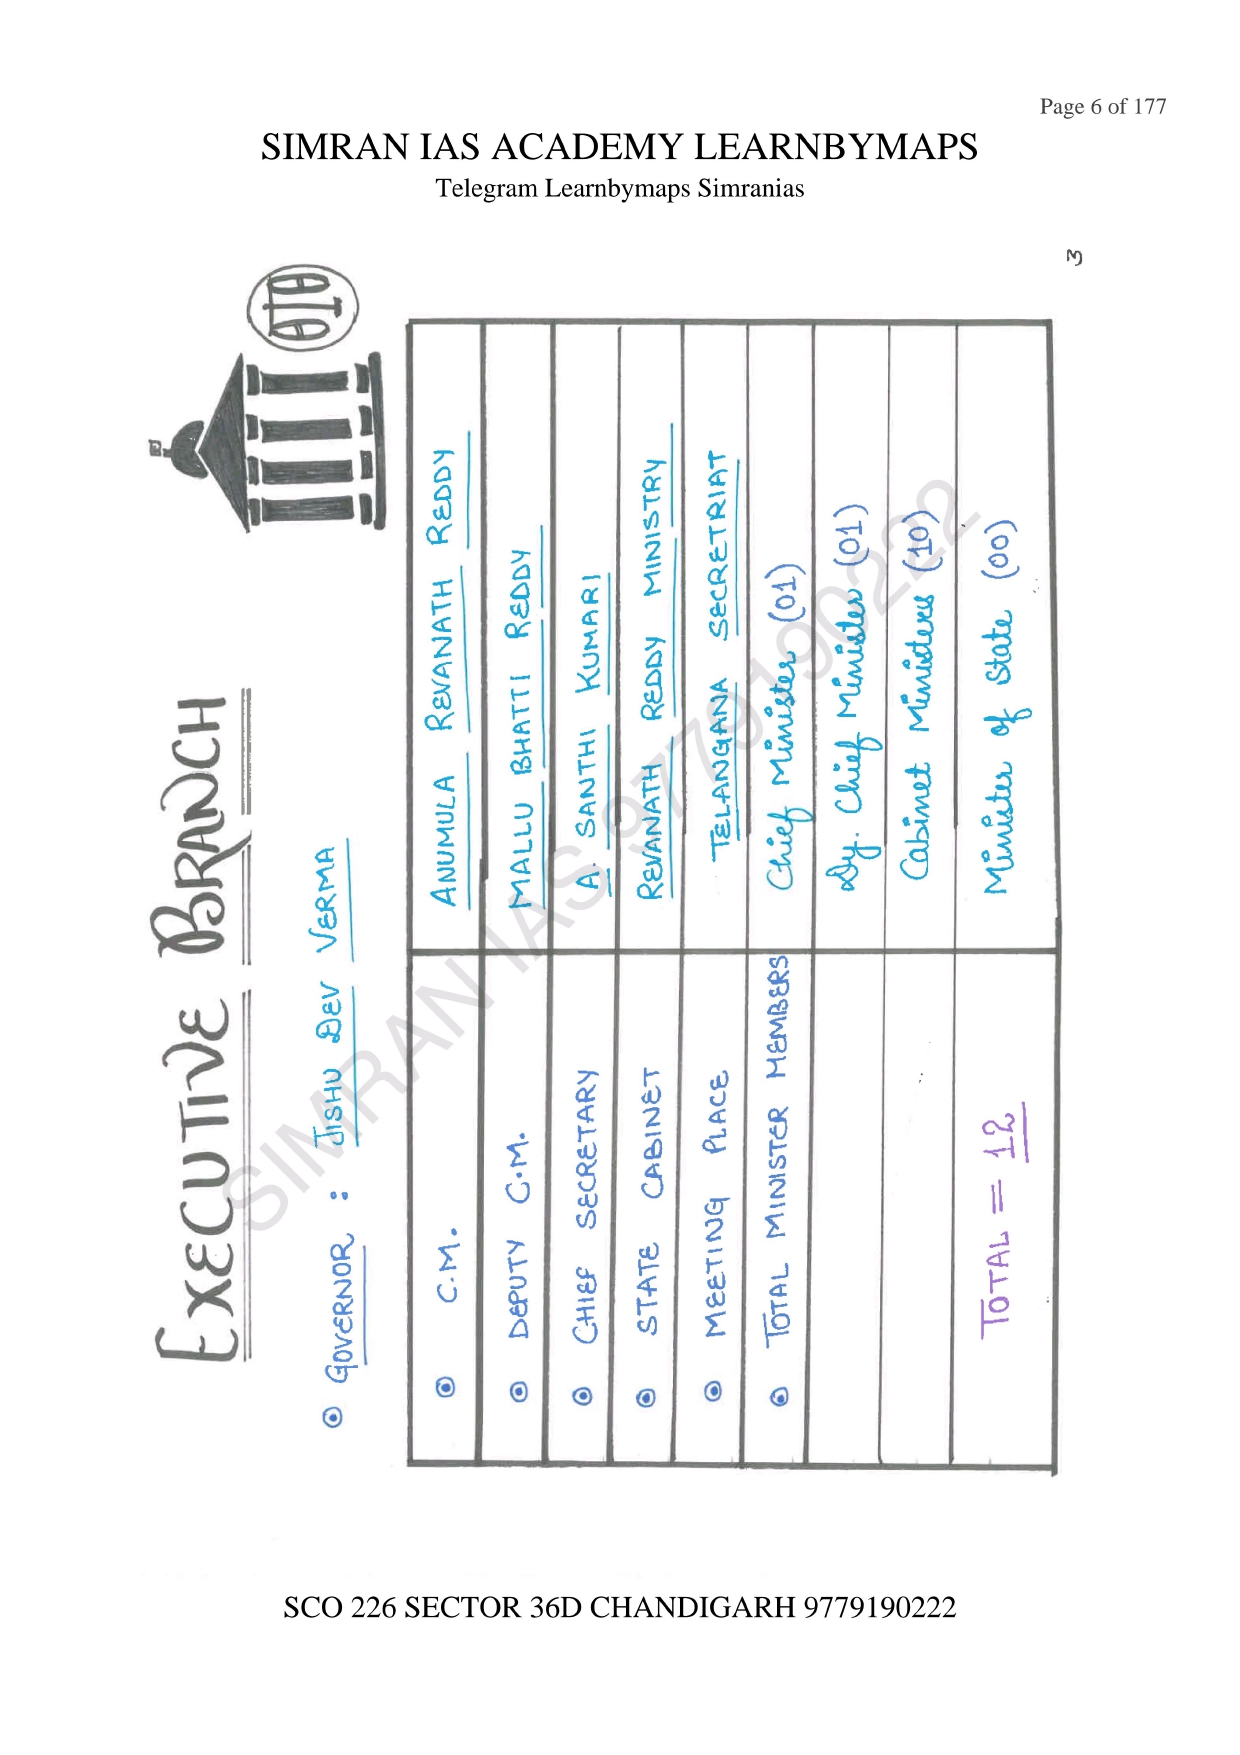 Page 6 of 177
SIMRAN IAS ACADEMY LEARNBYMAPS
Telegram Learnbymaps Simranias
3
EXECUTIVE BRANCH
GOVERNOR : JISHU DEV VERMA
C.M. ANUMULA REVANATH REDDY
DEPUTY C.M. MALLU BHATTI REDDY
CHIEF SECRETARY A. SANTHI KUMARI
STATE CABINET REVANATH REDDY MINISTRY
MEETING PLACE TELANGANA SECRETRIAT
TOTAL MINISTER MEMBERS Chief Minister (01)
Dy. Chief Minister (01)
Cabinet Ministers (10)
TOTAL = 12 Minister of State (00)
SIMRAN IAS 9779190222
SCO 226 SECTOR 36D CHANDIGARH 9779190222